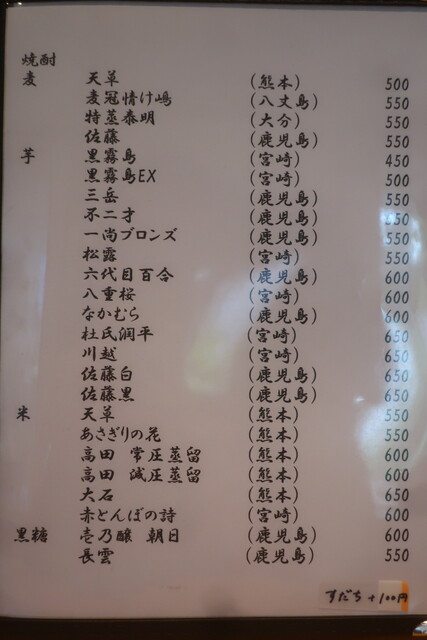 焼酎
麦 天草 (熊本) 500
麦冠情け嶋 (八丈島) 550
特蒸泰明 (大分) 550
佐藤 (鹿児島) 550
芋 黒霧島 (宮崎) 450
黒霧島EX (宮崎) 500
三岳 (鹿児島) 550
不二才 (鹿児島) 550
一尚ブロンズ (鹿児島) 550
松露 (宮崎) 550
六代目百合 (鹿児島) 600
八重桜 (宮崎) 600
なかむら (鹿児島) 600
杜氏潤平 (宮崎) 650
川越 (宮崎) 650
佐藤白 (鹿児島) 650
佐藤黒 (鹿児島) 650
米 天草 (熊本) 550
あさぎりの花 (熊本) 550
高田 常圧蒸留 (熊本) 600
高田 減圧蒸留 (熊本) 600
大石 (熊本) 650
赤とんぼの詩 (宮崎) 600
黒糖 壱乃醸 朝日 (鹿児島) 600
長雲 (鹿児島) 550
すだち +100円